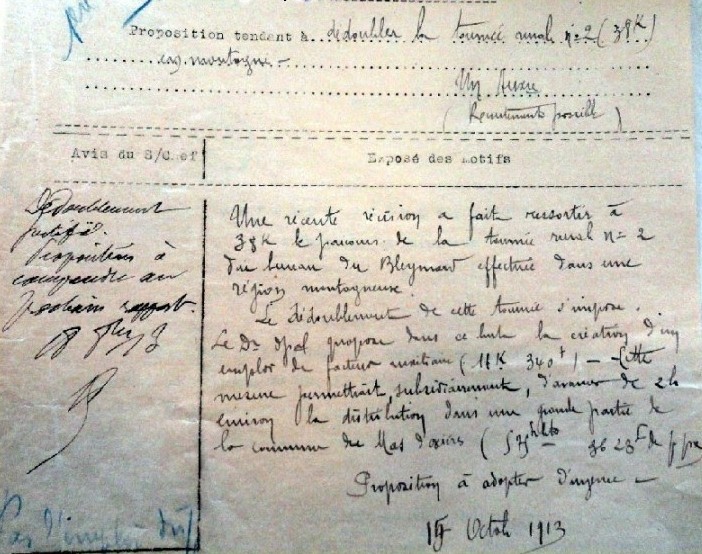 Proposition tendant à dédoubler la tournée rurale n=2 (38K)
en montagne -
Un Auxre
(Recrutement possible)
Avis du S/Chef
Exposé des Motifs
Dédoublement
justifié.
Proposition à
comprendre au
prochain rapport.
Une récente révision a fait ressortir à
38K le parcours de la tournée rural n=2
du bureau du Bleymard effectuée dans une
région montagneuse.
Le dédoublement de cette tournée s'impose.
Le Dr dpal propose dans ce but la création d'un
emploi de facteur auxiliaire (18K 340f) - Cette
mesure permettrait, subsidiairement, d'avancer de 2h
environ la distribution dans une grande partie de
la commune du Mas d'
Proposition à adopter d'urgence -
Octob 1913
Pas d'emploi